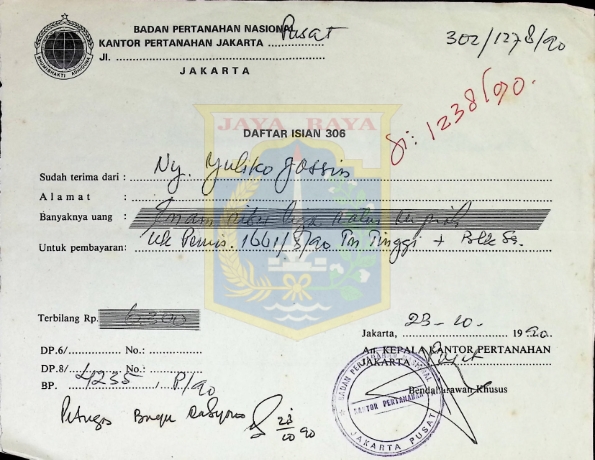 BADAN PERTANAHAN NASIONAL
KANTOR PERTANAHAN JAKARTA Pusat
Jl. ..........
JAKARTA
302/1278/90
di: 1238/90.
JAYA RAYA
DAFTAR ISIAN 306
Sudah terima dari : Ny. Yuliko
Alamat :
Banyaknya uang : Enam ribu rupiah
Untuk pembayaran: 1661/8/90 Tn Tinggi +
Terbilang Rp.
Jakarta, 23-10. 1990.
An. KEPALA KANTOR PERTANAHAN
JAKARTA Pusat
DP.6/ No.:
DP.8/ No.:
BP. 4235, P/90
Bendaharawan Khusus
BADAN PERTANAHAN NASIONAL
KANTOR PERTANAHAN
JAKARTA PUSAT
Petugas 23/10 90